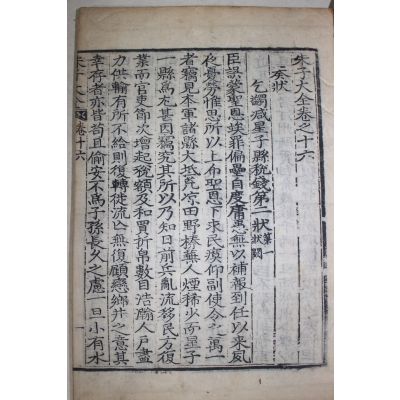 朱子大全卷之十六
奏狀
乞蠲减星子縣稅錢第二狀 第一狀闕
臣誤蒙聖恩竢罪偏壘自度庸愚無以補報到任以來夙
夜憂勞惟思所以上布聖恩下求民瘼仰副使令之萬一
者竊見本軍諸縣大抵荒凉田野榛蕪人煙稀少而星子
一縣爲尤甚因竊究其所以乃知日前兵亂流移民方復
業而官吏節次增起稅額及和買折帛數目浩瀚人戶盡
力供輸有所不給則復轉徙流亾無復顧戀鄉井之意其
幸存者亦皆苟且偷安不爲子孫長久之慮一旦小有水
朱子大 卷十六
一